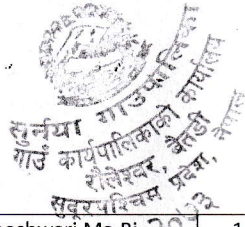 सुर्नया गाउँपालिका
गाउँ कार्यपालिकाको कार्यालय
शैलेश्वर, बैतडी
सुदूरपश्चिम प्रदेश, नेपाल
eshwari Ma Bi
1